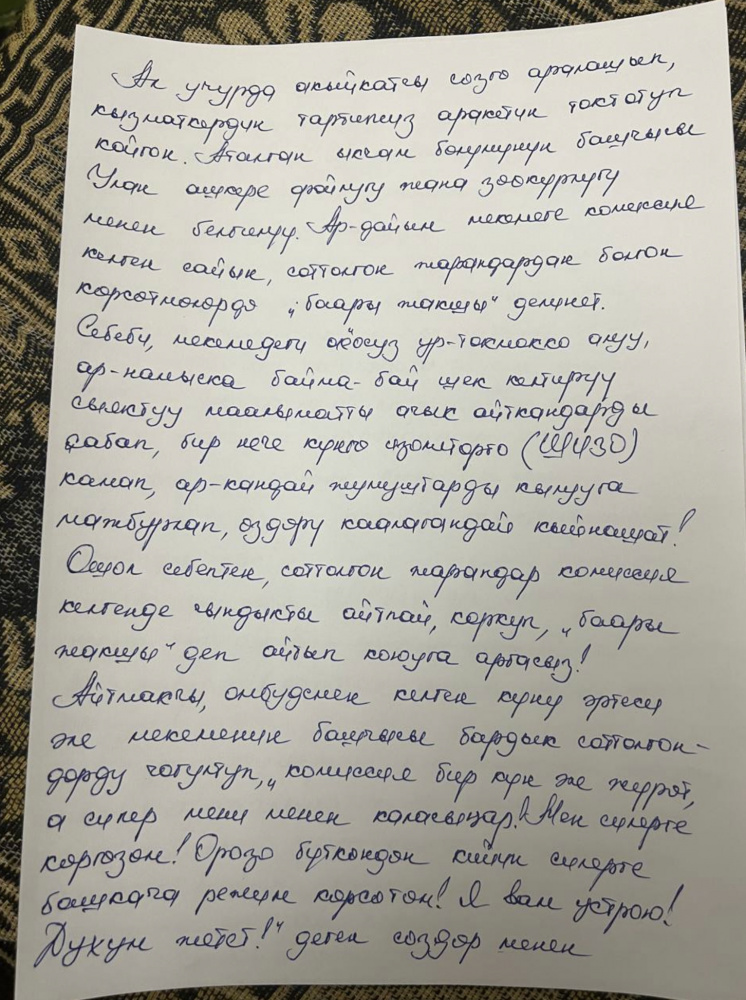 Ал учурда акыйкатчы созго аралашып,
кызматкердин тартипсиз аракетин токтотуп
койгон. Аталган ыкчам болумунун башчысы
Улан ашкере фойлугу жана зоокурлугу
менен белгилуу. Ар-дайым мекемеге комиссия
келген сайын, соттолгон жарандардан болгон
корсотмолордо "баары жакшы" делинет.
Себеби, мекемедеги аёосуз ур-токмокко алуу,
ар-намыска байма-бай шек келтируу
сыяктуу маалыматты ачык айткандарды
сабап, бир нече кунго изоляторго (ШИЗО)
камап, ар-кандай жумуштарды кылууга
мажбурлап, оздору каалагандай кыйнашат!
Ошол себептен, соттолгон жарандар комиссия
келгенде чындыкты айтпай, коркуп, "баары
жакшы" деп айтып коюуга аргасыз!
Айтмакчы, омбудсмен келген куну эртеси
эле мекеменин башчысы бардык соттолгон-
дорду чогултуп, "комиссия бир кун эле журот,
а силер мени менен каласыңар! Мен силерге
коргозом! Орозо буткондон кийин силерге
башкача режим корсотом! Я вам устрою!
Духум жетет!" деген создор менен